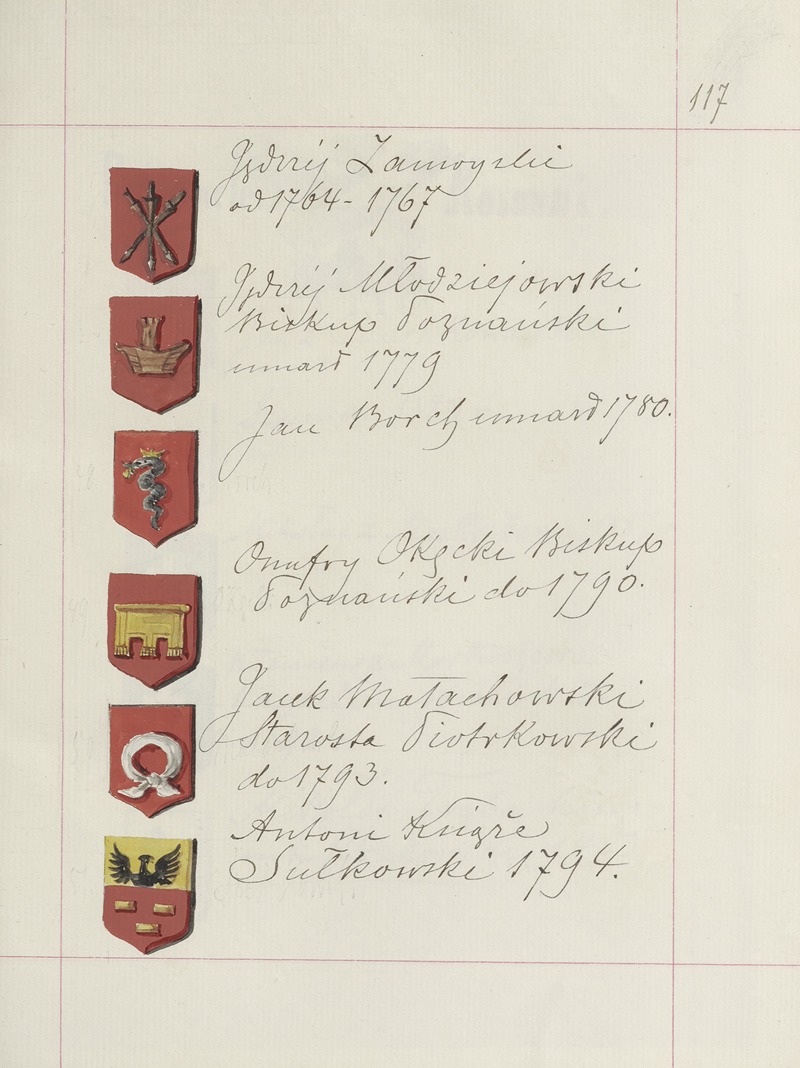 117
Jędrzij Zamoyski
od 1764 - 1767
Jędrzij Młodziejowski
Biskup Poznański
umarł 1779
Jan Borch umarł 1780.
Onufry Okęcki Biskup
Poznański do 1790.
Jacek Małachowski
Starosta Piotrkowski
do 1793.
Antoni Książe
Sułkowski 1794.